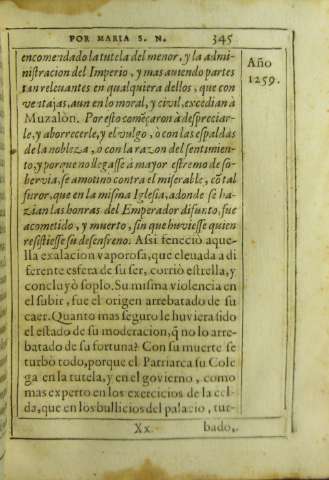 POR MARIA S. N. 345
encomendado la tutela del menor, y la admi-
nistracion del Imperio, y mas auiendo partes
tan releuantes en qualquiera dellos, que con
ventajas, aun en lo moral, y civil, excedian a
Muzalòn. Por esto começaron à despreciar-
le, y aborrecerle, y el vulgo, ò con las espaldas
de la nobleza, ò con la razon del sentimien-
to, y porque no llegasse à mayor estremo de so-
bervia, se amotino contra el miserable, cõ tal
furor, que en la misma Iglesia, adonde se ha-
zian las honras del Emperador difunto, fue
acometido, y muerto, sin que huviesse quien
resistiesse su desenfreno. Assi feneciò aque-
lla exalacion vaporosa, que eleuada a di
ferente esfera de su ser, corriò estrella, y
concluyò soplo. Su misma violencia en
el subir, fue el origen arrebatado de su
caer. Quanto mas seguro le huviera sido
el estado de su moderacion, q̃ no lo arre-
batado de su fortuna? Con su muerte se
turbò todo, porque el Patriarca su Cole
ga en la tutela, y en el govierno, como
mas experto en los exercicios de la cel-
da, que en los bullicios del palacio, tur-
Xx. bado,
Año
1259.